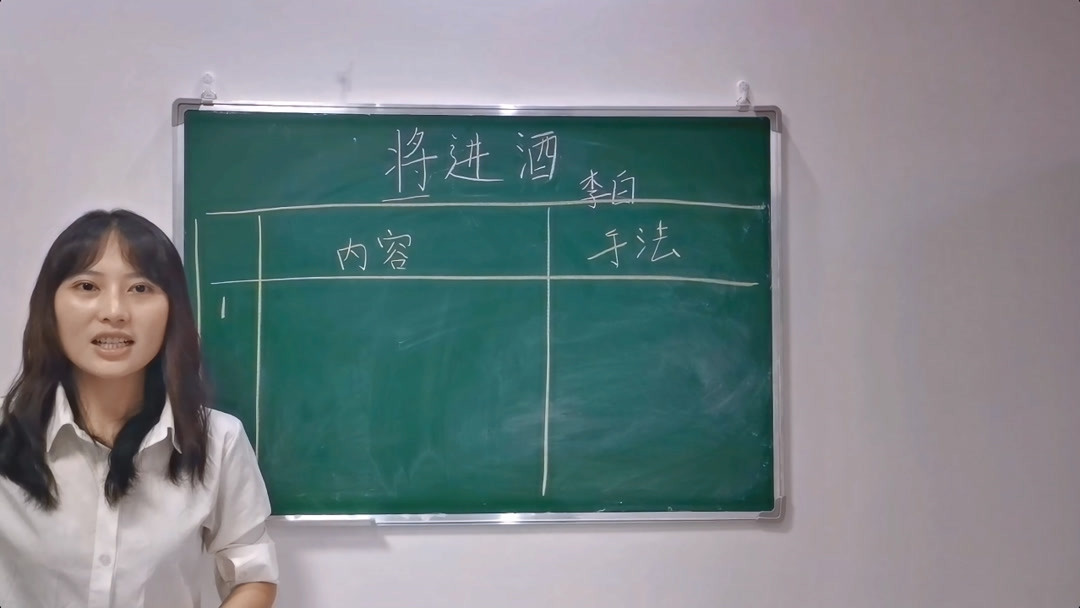 将进酒
李白
内容 手法
1